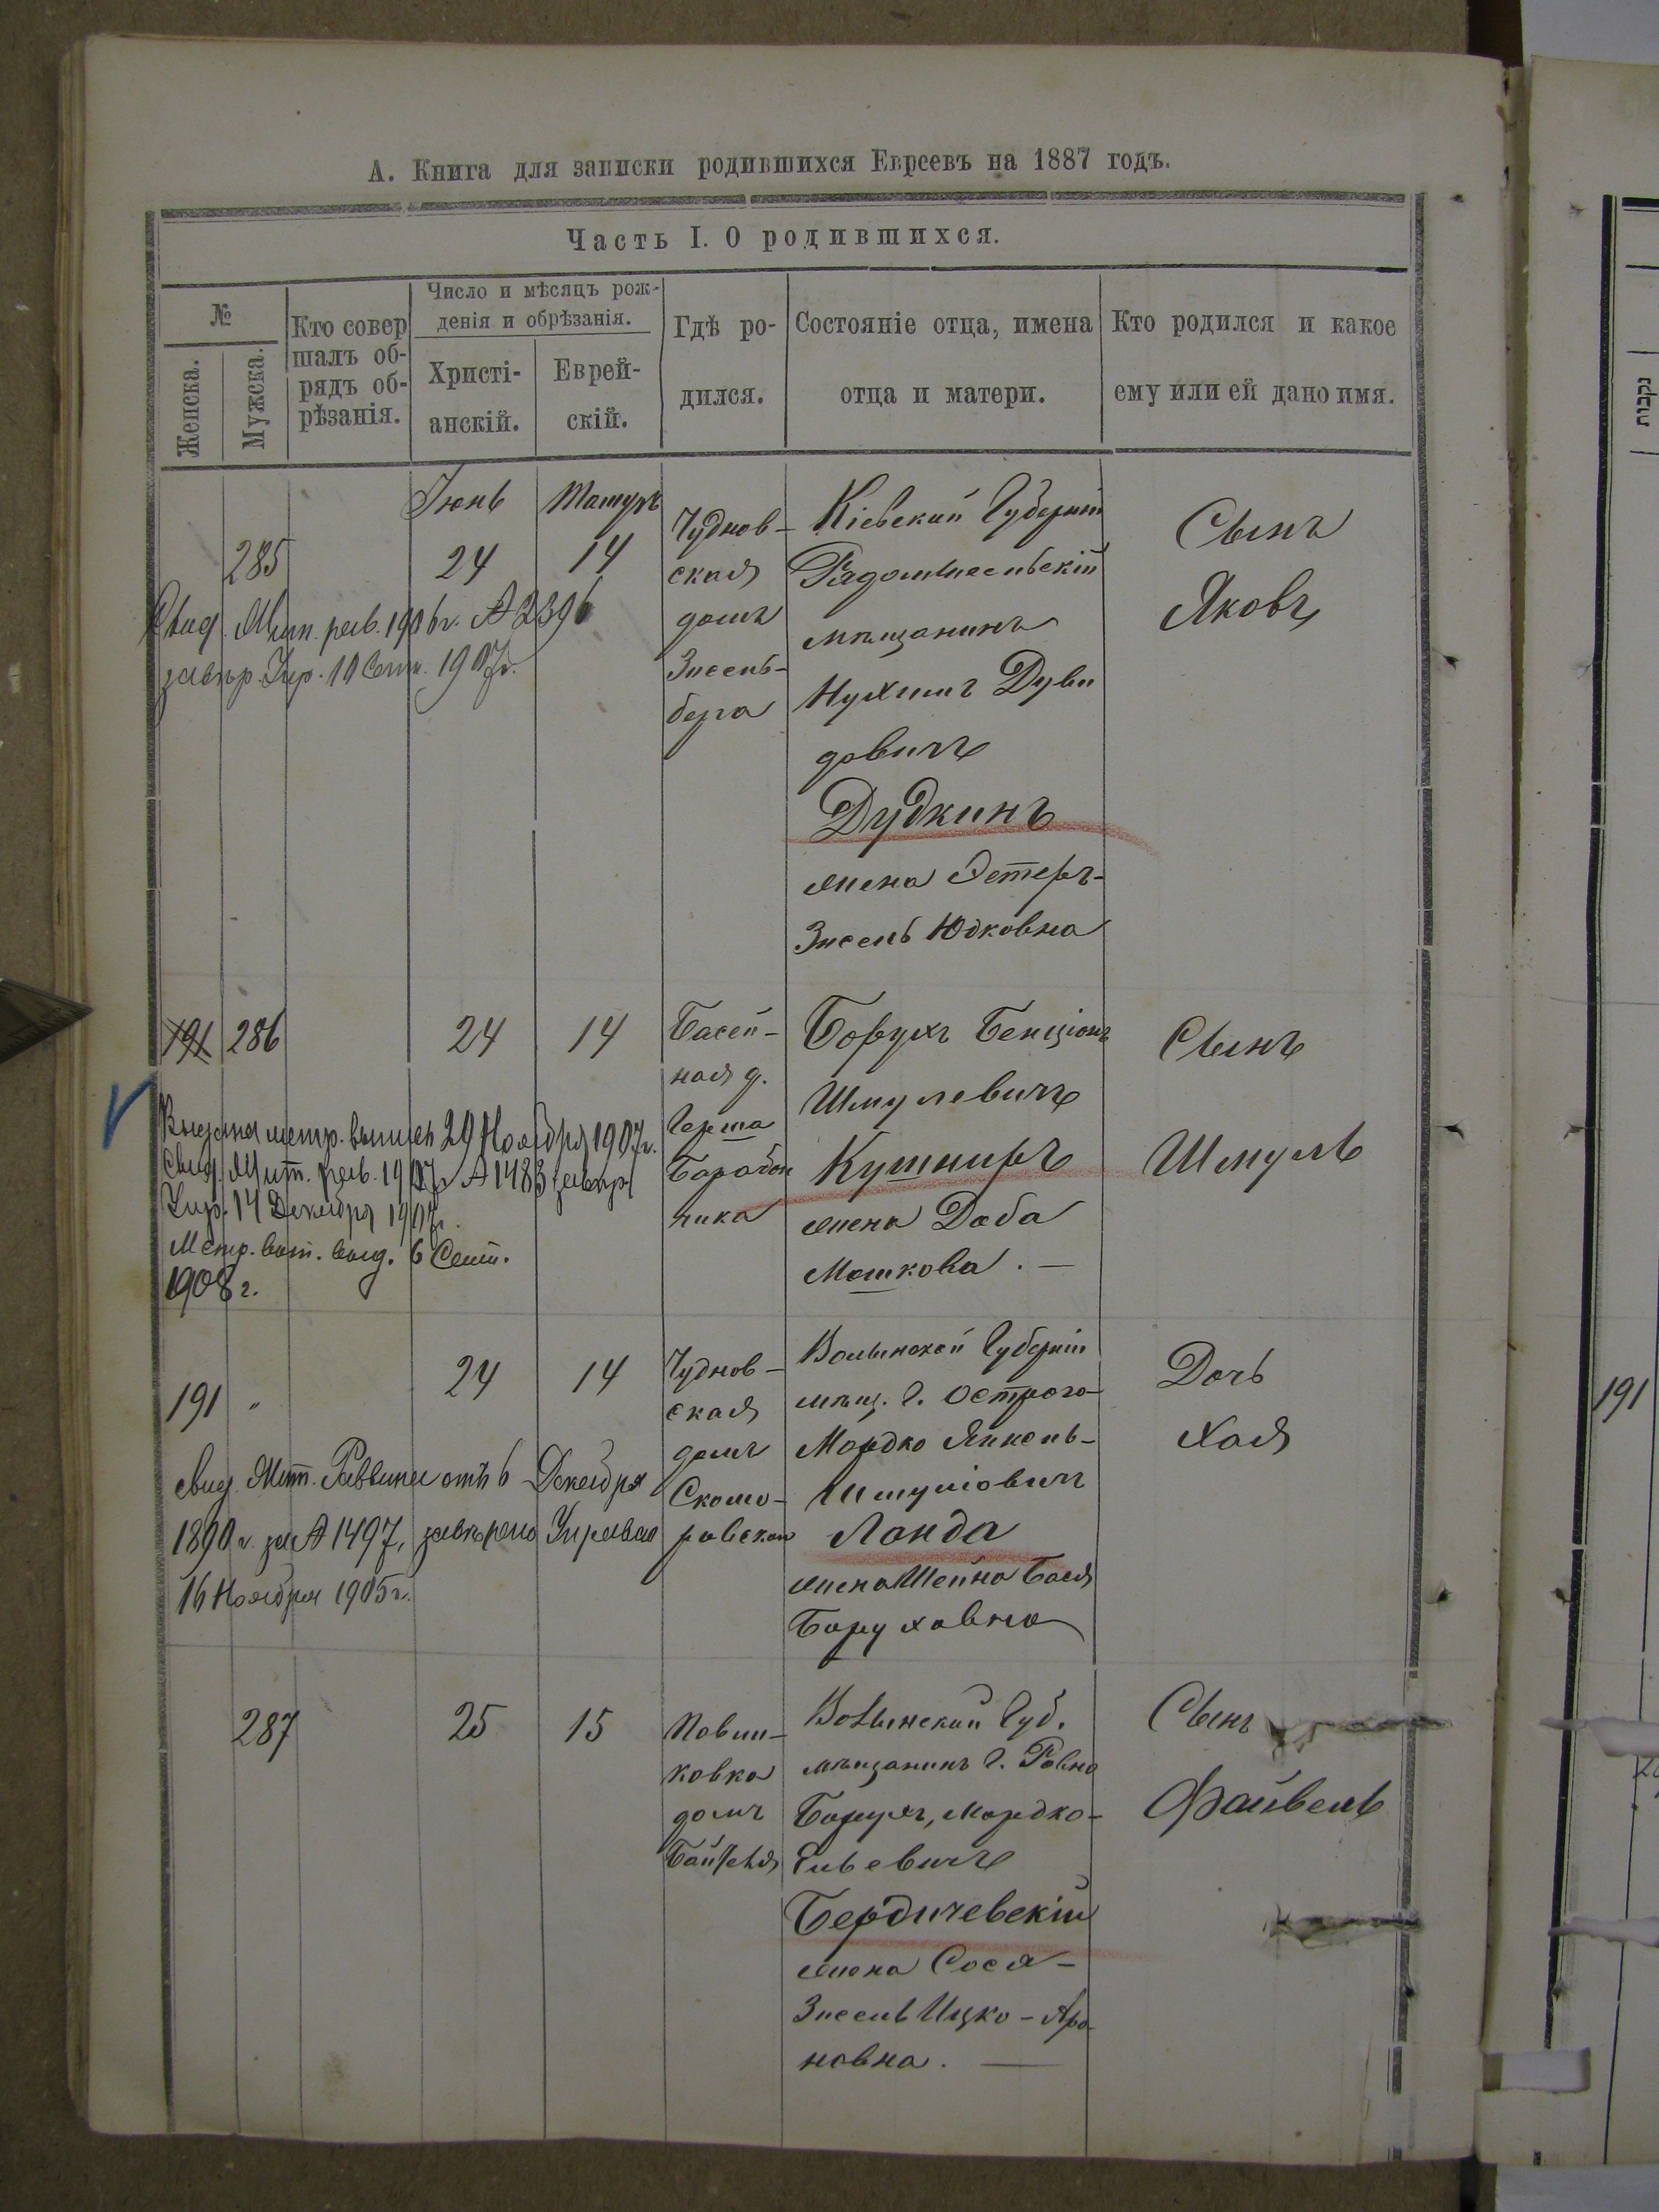 А. Книга для записки родившихся Евреевъ на 1887 годъ.
Часть I. О родившихся.
№
Женска.
Мужска.
Кто совер
шалъ об-
рядъ об-
рѣзанія.
Число и мѣсяцъ рож-
денія и обрѣзанія.
Христі-
анскій.
Еврей-
скій.
Гдѣ ро-
дился.
Состояніе отца, имена
отца и матери.
Кто родился и какое
ему или ей дано имя.
285
Іюнь
24
14
Чуднов-
ская
домъ
Зисель-
берга
Кіевской Губерніи
Радомысльскій
мѣщанинъ
Нухимъ Дуви
довичъ
Дудкинъ
жена Эстеръ-
Зисель Юдковна
Сынъ
Яковъ
Свид. Жит. рав. 1906 г. № 2396
завѣр. Упр. 10 Сент. 1907 г.
191
286
24
14
Бассей-
ная д.
Герша
Борухъ Бенціонъ
Шмулевичъ
Кушниръ
жена Доба
Мошкова. —
Сынъ
Шмуль
Выдана метр. выпись 29 Ноября 1907 г.
Свид. Жит. рав. 1907 г. № 1483 завѣр.
Упр. 14 Декабря 1907 г.
Метр. вып. выд. 6 Сент.
1908 г.
191
"
24
14
Чуднов-
ская
домъ
Скомо-
ровской
Волынской Губерніи
мѣщ. г. Острога-
Мордко Янкель-
Шмуліовичъ
Ланда
жена Шейна Бася
Боруховна
Дочь
Хая
Свид. Жит. Раввина отъ 6 Декабря
1890 г. за № 1497, завѣрено Управою
16 Ноября 1905 г.
287
25
15
Павли-
ковка
домъ
Волынской Губ.
мѣщанинъ г. Ровно
Борухъ, Мордко-
Ельевичъ
Бердичевскій
жена Сося-
Зисель Ицко-Аро
новна. —
Сынъ
Файвель
נקבות
191